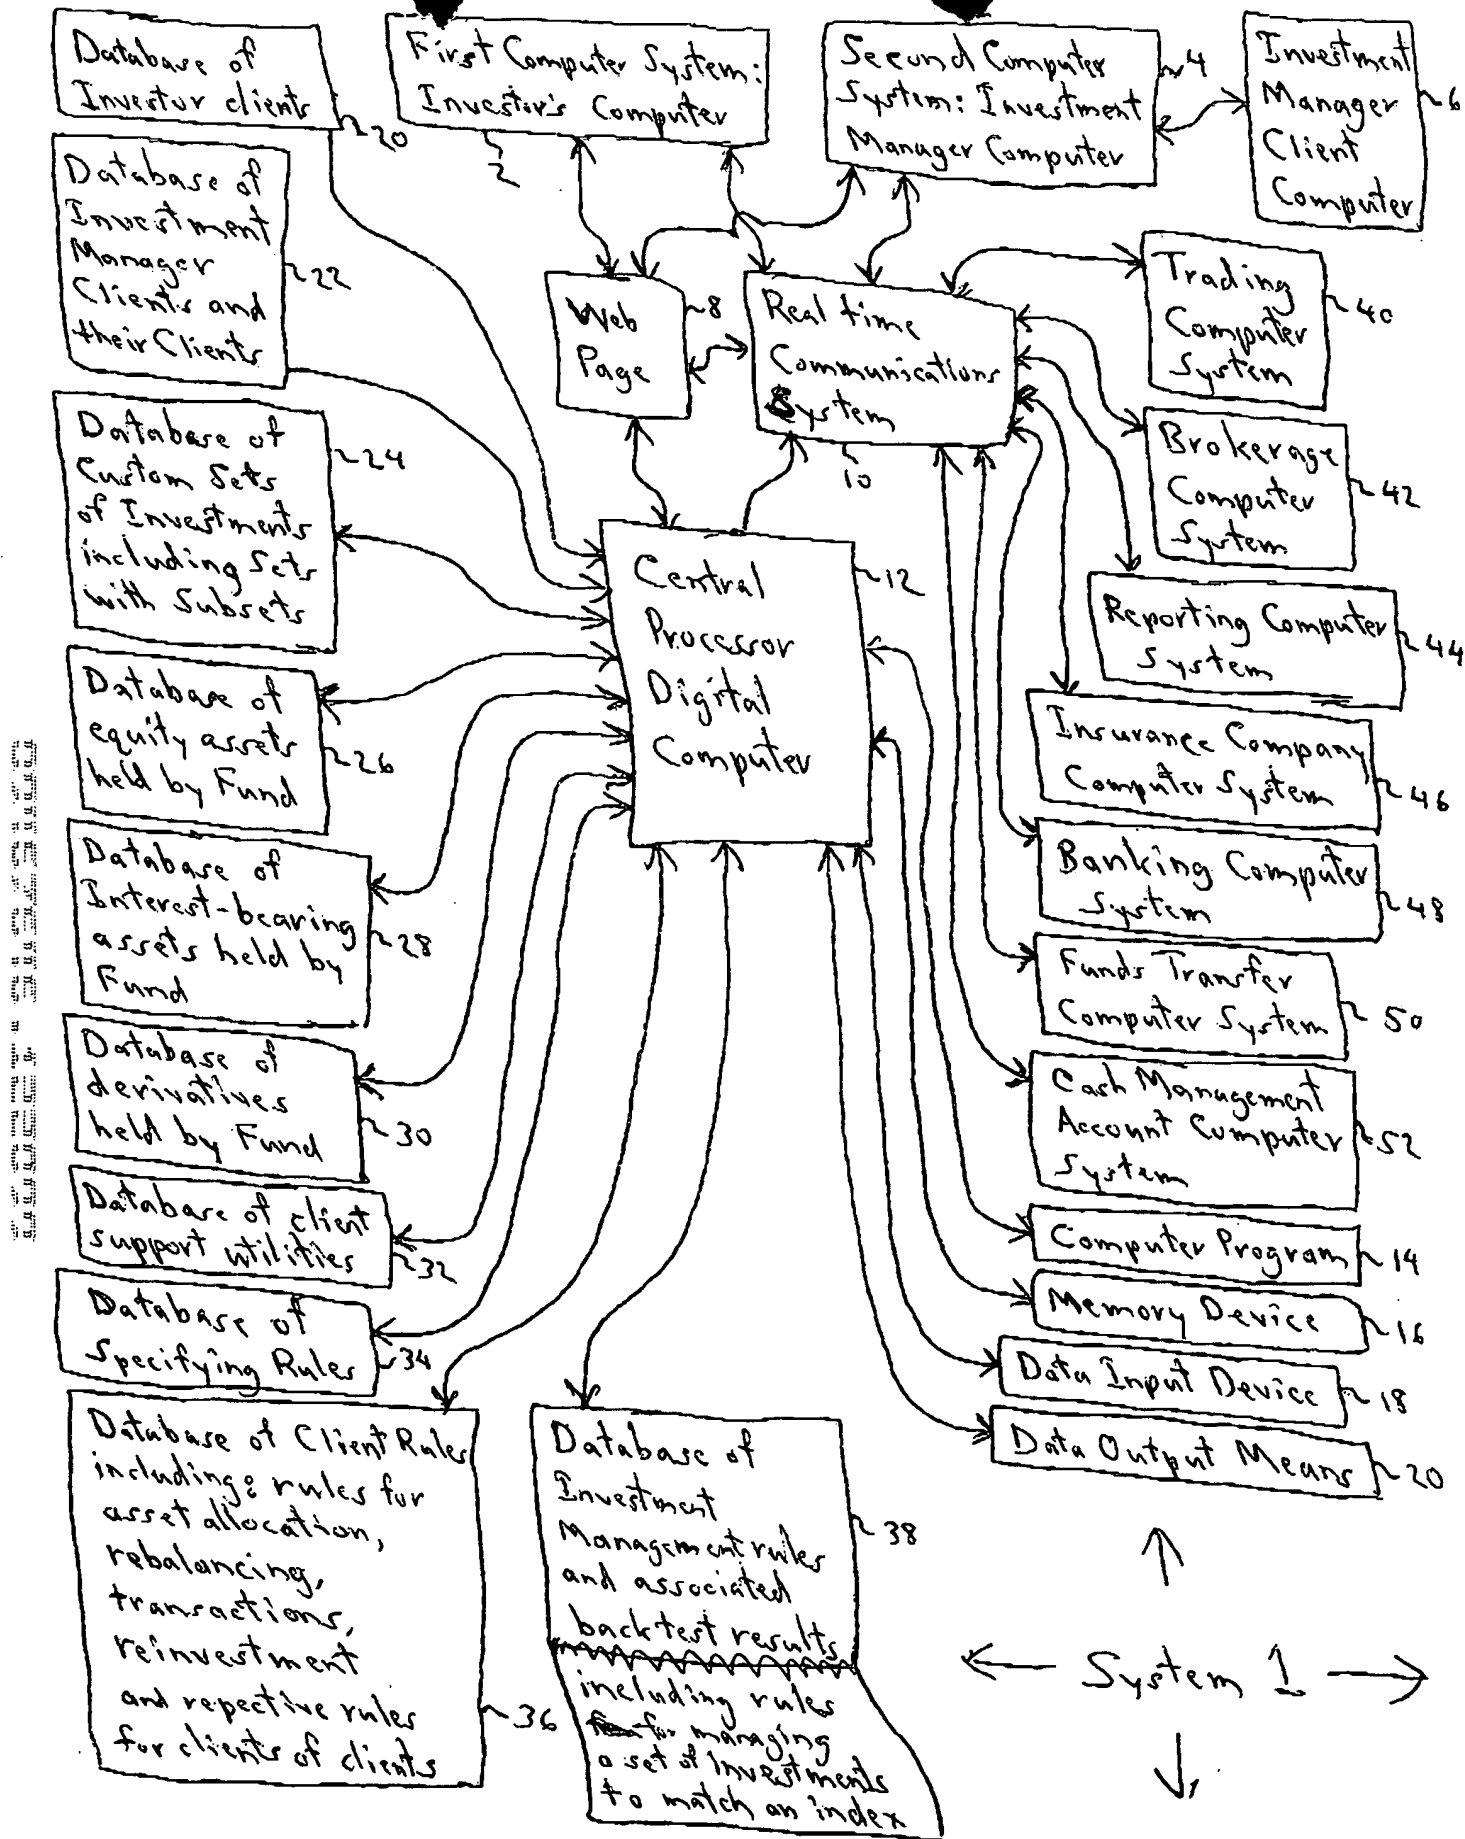 Database of
Investor clients
20
First Computer System:
Investor's Computer
2
Second Computer
System: Investment
Manager Computer
4
Investment
Manager
Client
Computer
6
Database of
Investment
Manager
Clients and
their Clients
22
Web
Page
8
Real time
Communications
System
10
Trading
Computer
System
40
Database of
Custom Sets
of Investments
including Sets
with Subsets
24
Brokerage
Computer
System
42
Central
Processor
Digital
Computer
12
Reporting Computer
System
44
Database of
equity assets
held by Fund
26
Insurance Company
Computer System
46
Database of
Interest-bearing
assets held by
Fund
28
Banking Computer
System
48
Funds Transfer
Computer System
50
Database of
derivatives
held by Fund
30
Cash Management
Account Computer
System
52
Database of client
support utilities
32
Computer Program
14
Memory Device
16
Database of
Specifying Rules
34
Data Input Device
18
Data Output Means
20
Database of Client Rules
including: rules for
asset allocation,
rebalancing,
transactions,
reinvestment
and repective rules
for clients of clients
36
Database of
Investment
Management rules
and associated
backtest results
including rules
for managing
a set of Investments
to match an index
38
System 1